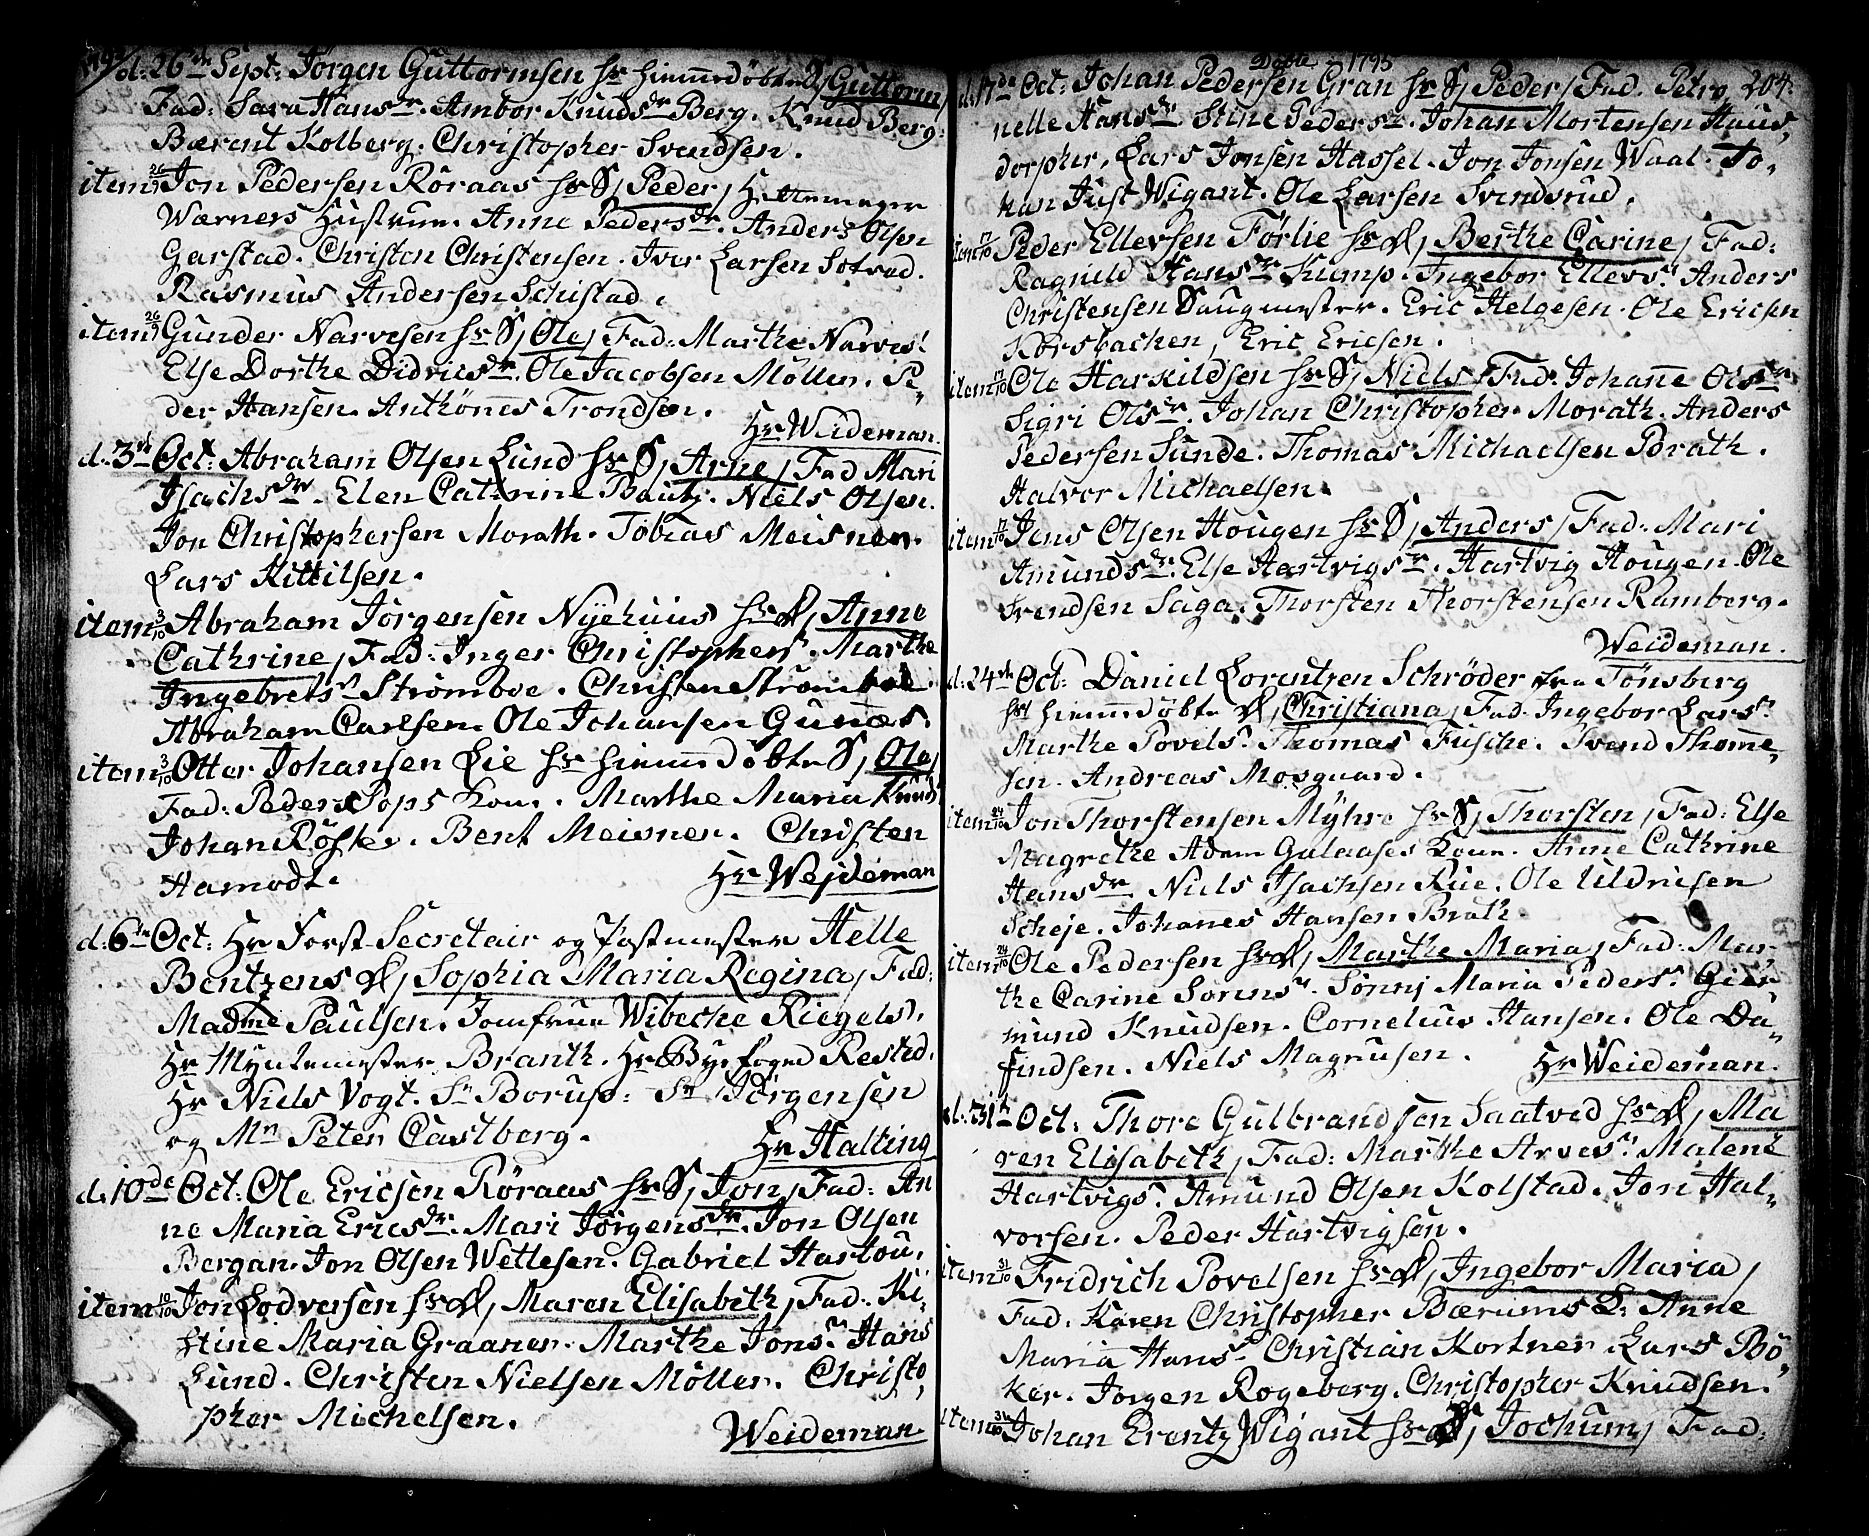 d: 26de Sept: Jörgen Guttormsen hr hiemmedöbte S, Guttorm,
Fad: Sara Hansdr. Ambor Knudsdr Berg. Knud Berg.
Bærent Kolberg. Christopher Svendsen.
item 26/9 Jon Pedersen Röraas hr S, Peder,
Wærners Hustrue. Anne Pedersdr. Anders Olsen
Garstad. Christen Christensen. Iver Larsen Sotved.
Rasmus Andersen Schistad.
item 26/9 Gunder Narvesen hr S, Ole, Fad: Marthe Narves:
Else Dorthe Didricsdr. Ole Jacobsen Möller. Pe,
der Hansen. Anthönnes Trondsen.
Hr Weideman.
d: 3de Oct: Abraham Olsen Lund hr S, Arne, Fad Mari
Isachsdr. Elen Cathrine Bautz. Niels Olsen.
Jon Christophersen Morath. Tobias Meisner.
Lars Kittilsen.
item 3/10 Abraham Jörgensen Nyehuus hr d, Anne
Cathrine, Fad: Inger Christophersr. Marthe
Ingebretsr Strømboe. Christen Strømboe.
Abraham Carlsen. Ole Johansen Gunæs.
item 3/10 Otter Johansen Lie hr hiemmedöbte S, Ole,
Fad: Peder Pops Kone. Marthe Maria Knuds
Johan Röste. Bent Meisner. Christen
Hamodt.
Hr Wejdeman
d: 6te Oct: Hr Forst-Secretair og Postmester Helle
Bentzens d, Sophia Maria Regina, Fad:
Madme Paulsen. Jomfrue Wibeche Riegels.
Hr Myntemester Branth. Hr Byefoged Rested.
Hr Niels Vogt. Sr Borup: Sr Jörgensen
og Mr Peter Castberg.
Hr Halting
d: 10de Oct: Ole Ericsen Röraas hr S, Jon, Fad: An
ne Maria Ericsdr. Mari Jörgensdr. Jon Olsen
Bergan. Jon Olsen Wetlesen. Gabriel Hartou.
item 10/10 Jon Lodversen hr d, Maren Elisabeth, Fad: Ki,
stine Maria Graaner. Marthe Jonsr. Hans
Lund. Christen Nielsen Möller. Christo,
pher Michelsen.
Weideman.
Döbte 1795
204.
d: 17de Oct: Johan Pedersen Gran hr S, Peder, Fad. Petro,
nelle Hansdr Stine Pedersr. Johan Mortensen Haus,
dorpher. Lars Jonsen Hassel. Jon Jonsen Waal. Jo,
han Just Wigant. Ole Larsen Svendsrud.
item 17/10 Peder Ellevsen Förlie hr d, Berthe Carine, Fad:
Ragnild Hansdr Kump. Ingebor Ellevsr. Anders
Christensen Saugmester. Eric Helgesen. Ole Ericsen
Korsbachen, Eric Ericsen.
item 17/10 Ole Harkildsen hr S, Niels, Fad. Johanne Olsdr
Sigri Olsdr. Johan Christopher Morath. Anders
Pedersen Sunde. Thomas Michaelsen Brath.
Halvor Michaelsen.
item 17/10 Jens Olsen Hougen hr S, Anders, Fad: Mari
Amundsdr. Else Hartvigsr. Hartvig Hougen. Ole
Svendsen Saga. Thorsten Thorstensen Ramberg.
Weideman.
d: 24de Oct: Daniel Lorentzen Schröder fra Tönsberg
hr hiemmedöbte d, Christiana, Fad. Ingebor Larsr.
Marthe Povelsr. Thomas Fusche. Svend Thomme,
sen. Andreas Mosguard.
item 24/10 Jon Thorstensen Myhre hr S, Thorsten, Fad: Else
Magrethe Adam Galaases Kone. Anne Cathrine
Hansdr Niels Isachsen Rue. Ole Uldricsen
Scheje. Johanes Hansen Brath.
item 24/10 Ole Pedersen hr d, Marthe Maria, Fad: Mar,
the Carine Sorensr. Sönnj Maria Pedersr. Gier
mund Knudsen. Cornelius Hansen. Ole Da,
findsen. Niels Magnusen.
Hr Weideman.
d: 31te Oct. Thore Gulbrandsen Saatved hr d, Ma
ren Elisabeth, Fad: Marthe Arvesr. Malene
Hartvigsr. Amund Olsen Kolstad. Jon Hal,
vorsen. Peder Hartvigsen.
item 31/10 Fridrich Povelsen hr d, Ingebor Maria,
Fad. Karen Christopher Bærums K: Anne
Maria Hansr. Christian Kortner. Lars Bö,
ker. Jörgen Rogeberg. Christopher Knudsen.
item 31/10 Johan Erentz Wigant hr S, Jochum, Fad: